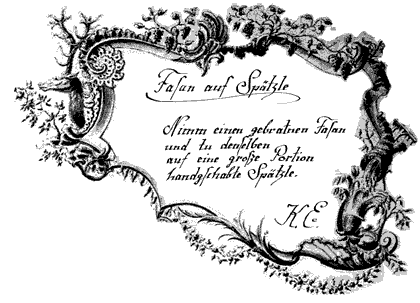 Fasan auf Spätzle
Nimm einen gebratnen Fasan
und tu denselben
auf eine große Portion
handgschabte Spätzle.
K. E.